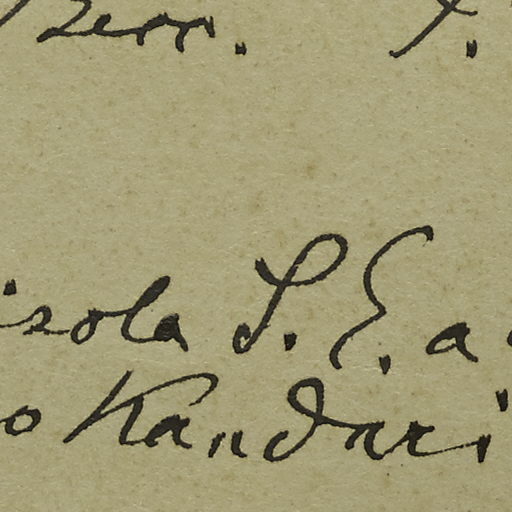 Berr.
isola S. E. a
o Kandari